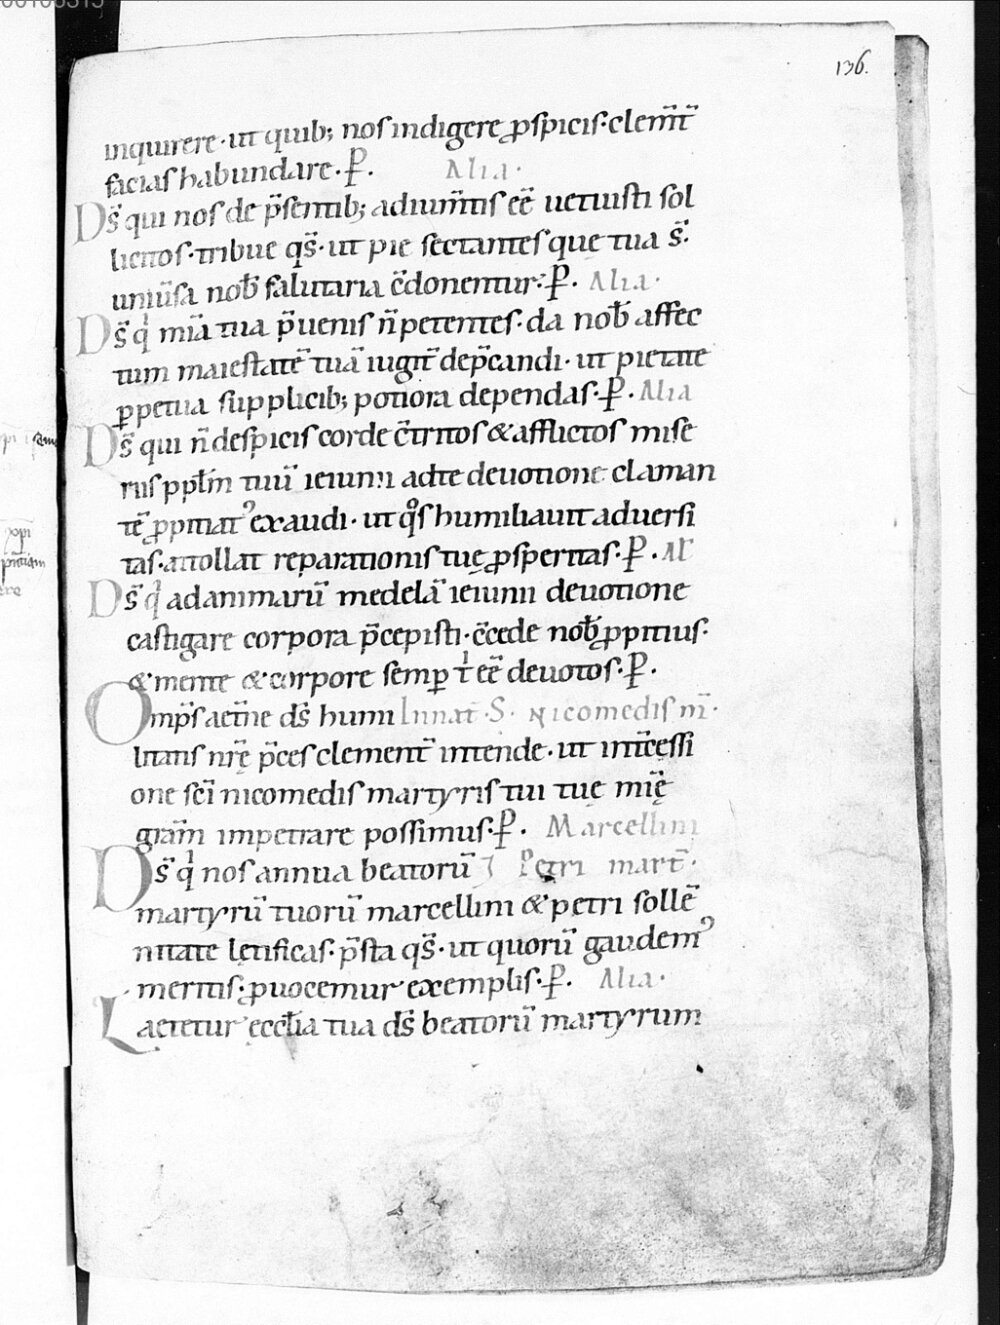 136.
inquirere · ut quib; nos indigere ꝓspicis · clem̅t̅
facias habundare · P̅. Alia ·
Ds̅ qui nos de p̅sentib; adium̅tis ee̅ uetuisti sol
licitos · tribue qs̅ · ut pie sectantes que tua s̅ ·
uniu̅sa nob̅ salutaria c̅donentur · P̅. Alia ·
Ds̅ qͥ mi̅a tua p̅uenis n̅ petentes · da nob̅ affec
tum maiestate̅ tua̅ iugit̅ dep̅candi · ut pietate
ꝑpetua supplicib; potiora dependas · P̅. Alia
Ds̅ qui n̅ despicis corde c̅tritos & afflictos mise
riis ppl̅m tuu̅ ieiunii ad te deuotione claman
te̅ ꝓpitiatꝰ exaudi · ut qͦs humiliauit aduersi
tas · attollat reparationis tuę ꝓsperitas · P̅. Al̅
Ds̅ qͥ ad animaru̅ medela̅ ieiunii deuotione
castigare corpora p̅cepisti · c̅cede nob̅ ꝓpitius ·
& mente & corpore semꝑ tͥ ee̅ deuotos · P̅.
Omp̅s aet̅ne ds̅ humi In nat̅ · S · Nicomedis m̅ ·
litatis nr̅ę p̅ces clement̅ intende · ut int̅cessi
one sc̅i nicomedis martyris tui tuę mi̅ę
gr̅am impetrare possimus · P̅. Marcellini
Ds̅ qͥ nos annua beatoru̅ ⁊ Petri mart̅ ·
martyru̅ tuoru̅ marcellini & petri solle̅
nitate lętificas · p̅sta qs̅ · ut quoru̅ gaudemꝰ
meritis · ꝓuocemur exemplis · P̅. Alia ·
Laetetur eccl̅ia tua ds̅ beatoru̅ martyrum